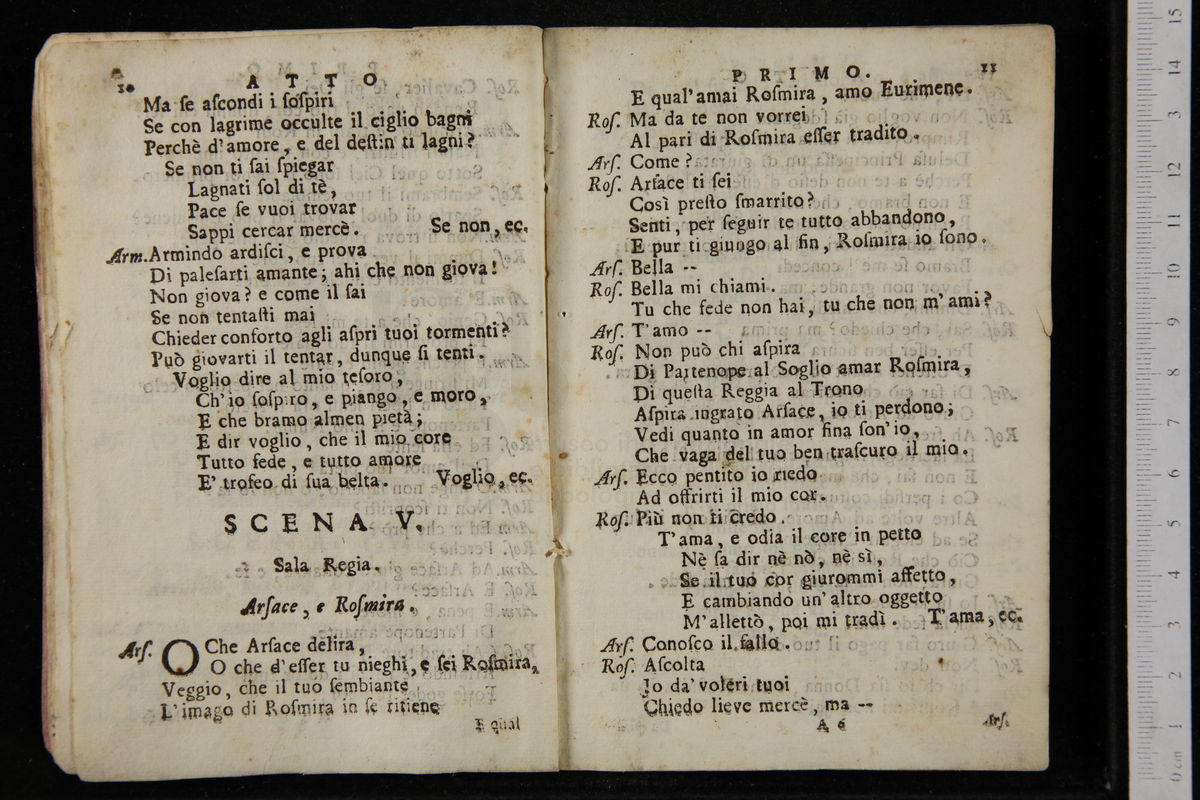 10
A T T O
Ma ſe aſcondi i ſoſpiri
Se con lagrime occulte il ciglio bagni
Perchè d'amore, e del deſtin ti lagni?
Se non ti ſai ſpiegar
Lagnati ſol di tè,
Pace ſe vuoi trovar
Sappi cercar mercè. Se non, ec.
Arm. Armindo ardiſci, e prova
Di paleſarti amante; ahi che non giova!
Non giova? e come il ſai
Se non tentaſti mai
Chieder conforto agli aſpri tuoi tormenti?
Può giovarti il tentar, dunque ſi tenti.
Voglio dire al mio teſoro,
Ch'io ſoſpiro, e piango, e moro,
E che bramo almen pietà;
E dir voglio, che il mio core
Tutto fede, e tutto amore
E' trofeo di ſua belta. Voglio, ec.
S C E N A V.
Sala Regia.
Arſace, e Roſmira.
Arſ. O Che Arſace delira,
O che d'eſſer tu nieghi, e ſei Roſmira,
Veggio, che il tuo ſembiante
L'imago di Roſmira in ſe ritiene
E qual
P R I M O.
11
E qual'amai Roſmira, amo Eurimene.
Roſ. Ma da te non vorrei
Al pari di Roſmira eſſer tradito.
Arſ. Come?
Roſ. Arſace ti ſei
Così preſto ſmarrito?
Senti, per ſeguir te tutto abbandono,
E pur ti giungo al fin, Roſmira io ſono.
Arſ. Bella --
Roſ. Bella mi chiami.
Tu che fede non hai, tu che non m'ami?
Arſ. T'amo --
Roſ. Non può chi aſpira
Di Partenope al Soglio amar Roſmira,
Di queſta Reggia al Trono
Aſpira ingrato Arſace, io ti perdono;
Vedi quanto in amor fina ſon'io,
Che vaga del tuo ben traſcuro il mio.
Arſ. Ecco pentito io riedo
Ad offrirti il mio cor.
Roſ. Più non ti credo.
T'ama, e odia il core in petto
Nè ſa dir nè nò, nè sì,
Se il tuo cor giurommi affetto,
E cambiando un'altro oggetto
M'allettò, poi mi tradì. T'ama, ec.
Arſ. Conoſco il fallo.
Roſ. Aſcolta
Io da' voleri tuoi
Chiedo lieve mercè, ma --
A 6
Arſ.